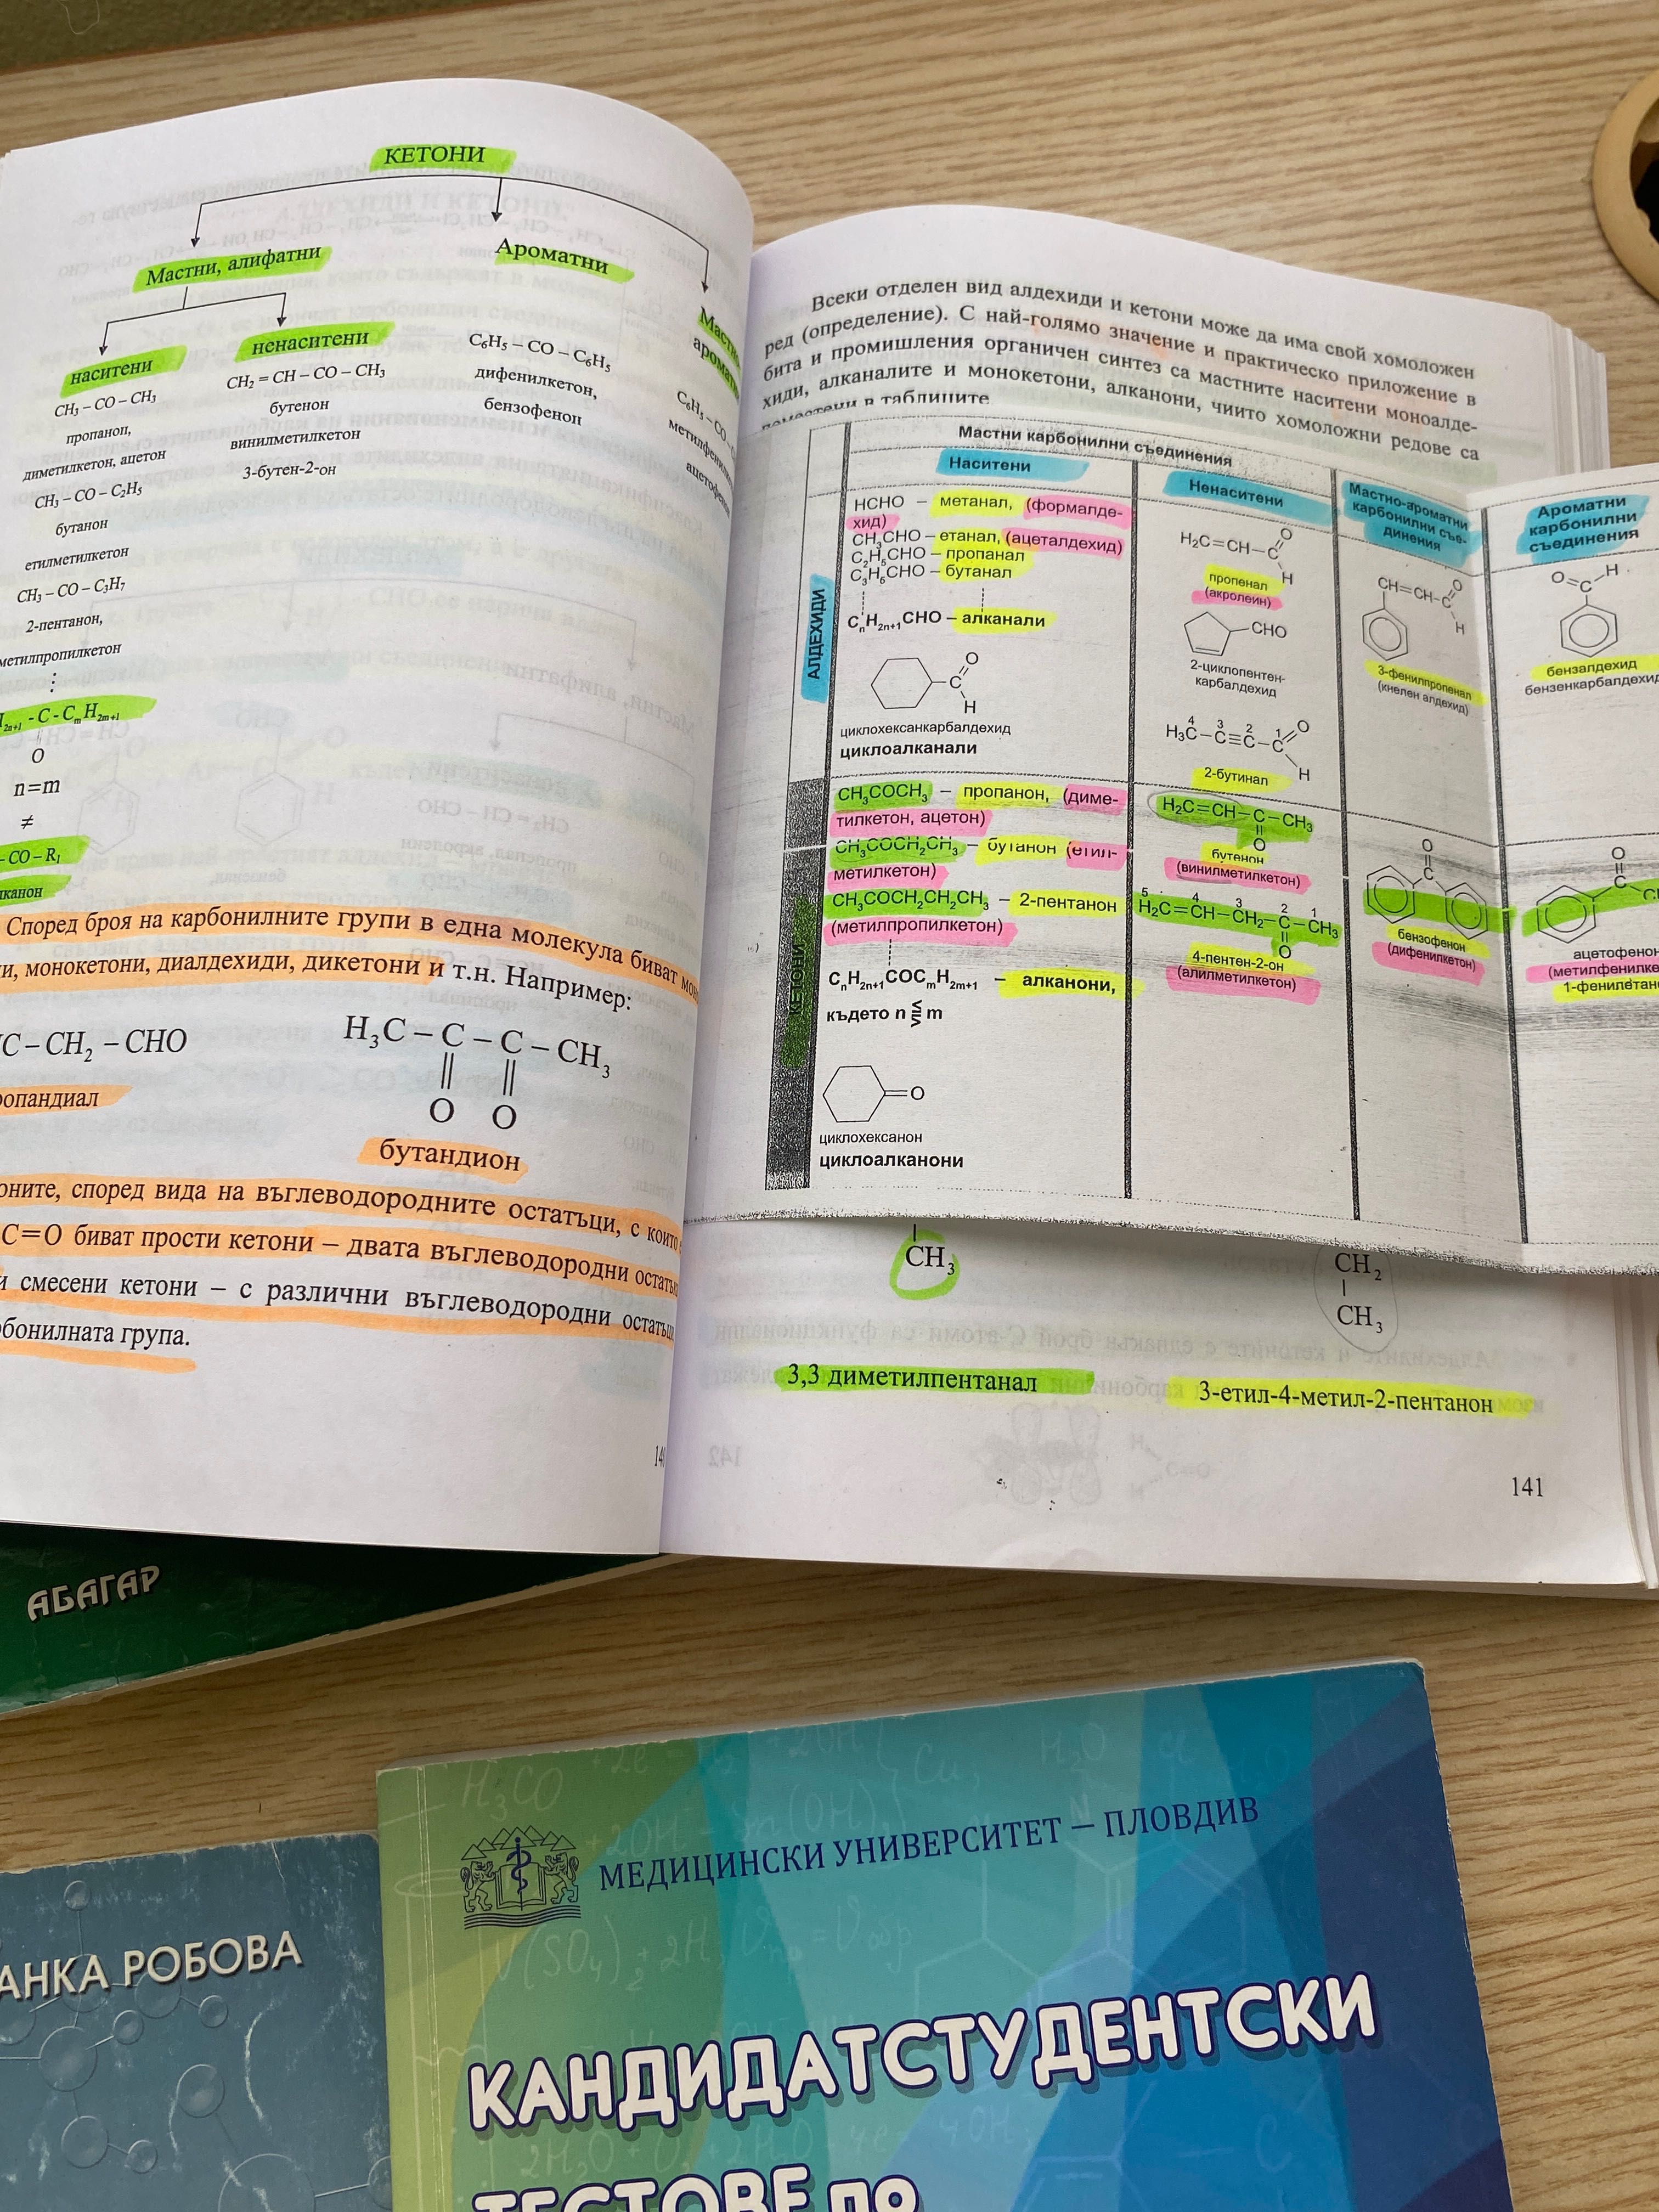 КЕТОНИ
Мастни, алифатни
Ароматни
наситени
ненаситени
CH₃ – CO – CH₃
пропанон,
диметилкетон, ацетон
CH₃ – CO – C₂H₅
бутанон
етилметилкетон
CH₃ – CO – C₃H₇
2-пентанон,
метилпропилкетон
⋮
₂ₙ₊₁ - C - CₘH₂ₘ₊₁
||
O
n=m
≠
– CO – R₁
CH₂ = CH – CO – CH₃
бутенон
винилметилкетон
3-бутен-2-он
C₆H₅ – CO – C₆H₅
дифенилкетон,
бензофенон
C₆H₅ – CO –
Според броя на карбонилните групи в една молекула биват
монокетони, диалдехиди, дикетони и т.н. Например:
C – CH₂ – CHO
H₃C – C – C – CH₃
|| ||
O O
бутандион
според вида на въглеводородните остатъци, с които
C=O биват прости кетони – двата въглеводородни
и смесени кетони – с различни въглеводородни
групата.
Всеки отделен вид алдехиди и кетони може да има свой хомоложен
ред (определение). С най-голямо значение и практическо приложение в
бита и промишления органичен синтез са мастните наситени моноалде-
хиди, алканалите и монокетони, алканони, чиито хомоложни редове са
в таблиците
Мастни карбонилни съединения
Наситени
Ненаситени
Мастно-ароматни
карбонилни съе-
динения
Ароматни
карбонилни
съединения
АЛДЕХИДИ
HCHO – метанал, (формалде-
хид)
CH₃CHO – етанал, (ацеталдехид)
C₂H₅CHO – пропанал
C₃H₆CHO – бутанал
CₙH₂ₙ₊₁CHO – алканали
C
O
H
циклохексанкарбалдехид
циклоалканали
H₂C=CH–C
O
H
пропенал
(акролеин)
CHO
2-циклопентен-
карбалдехид
4 3 2 1
H₃C–C≡C–C
O
H
2-бутинал
CH=CH–C
O
H
3-фенилпропенал
(кнелен алдехид)
O=C–H
бензалдехид
бензенкарбалдехид
КЕТОНИ
CH₃COCH₃ – пропанон, (диме-
тилкетон, ацетон)
CH₃COCH₂CH₃ – бутанон (етил-
метилкетон)
CH₃COCH₂CH₂CH₃ – 2-пентанон
(метилпропилкетон)
CₙH₂ₙ₊₁COCₘH₂ₘ₊₁ – алканони,
където n ≶ m
=O
циклохексанон
циклоалканони
H₂C=CH–C–CH₃
||
O
бутенон
(винилметилкетон)
5 4 3 2 1
H₂C=CH–CH₂–C–CH₃
||
O
4-пентен-2-он
(алилметилкетон)
O
C
бензофенон
(дифенилкетон)
O
C
ацетофенон
CH₃
CH₂
CH₃
3,3 диметилпентанал
3-етил-4-метил-2-пентанон
141
АБАГАР
РОБОВА
МЕДИЦИНСКИ УНИВЕРСИТЕТ – ПЛОВДИВ
КАНДИДАТСТУДЕНТСКИ
ТЕСТОВЕ по